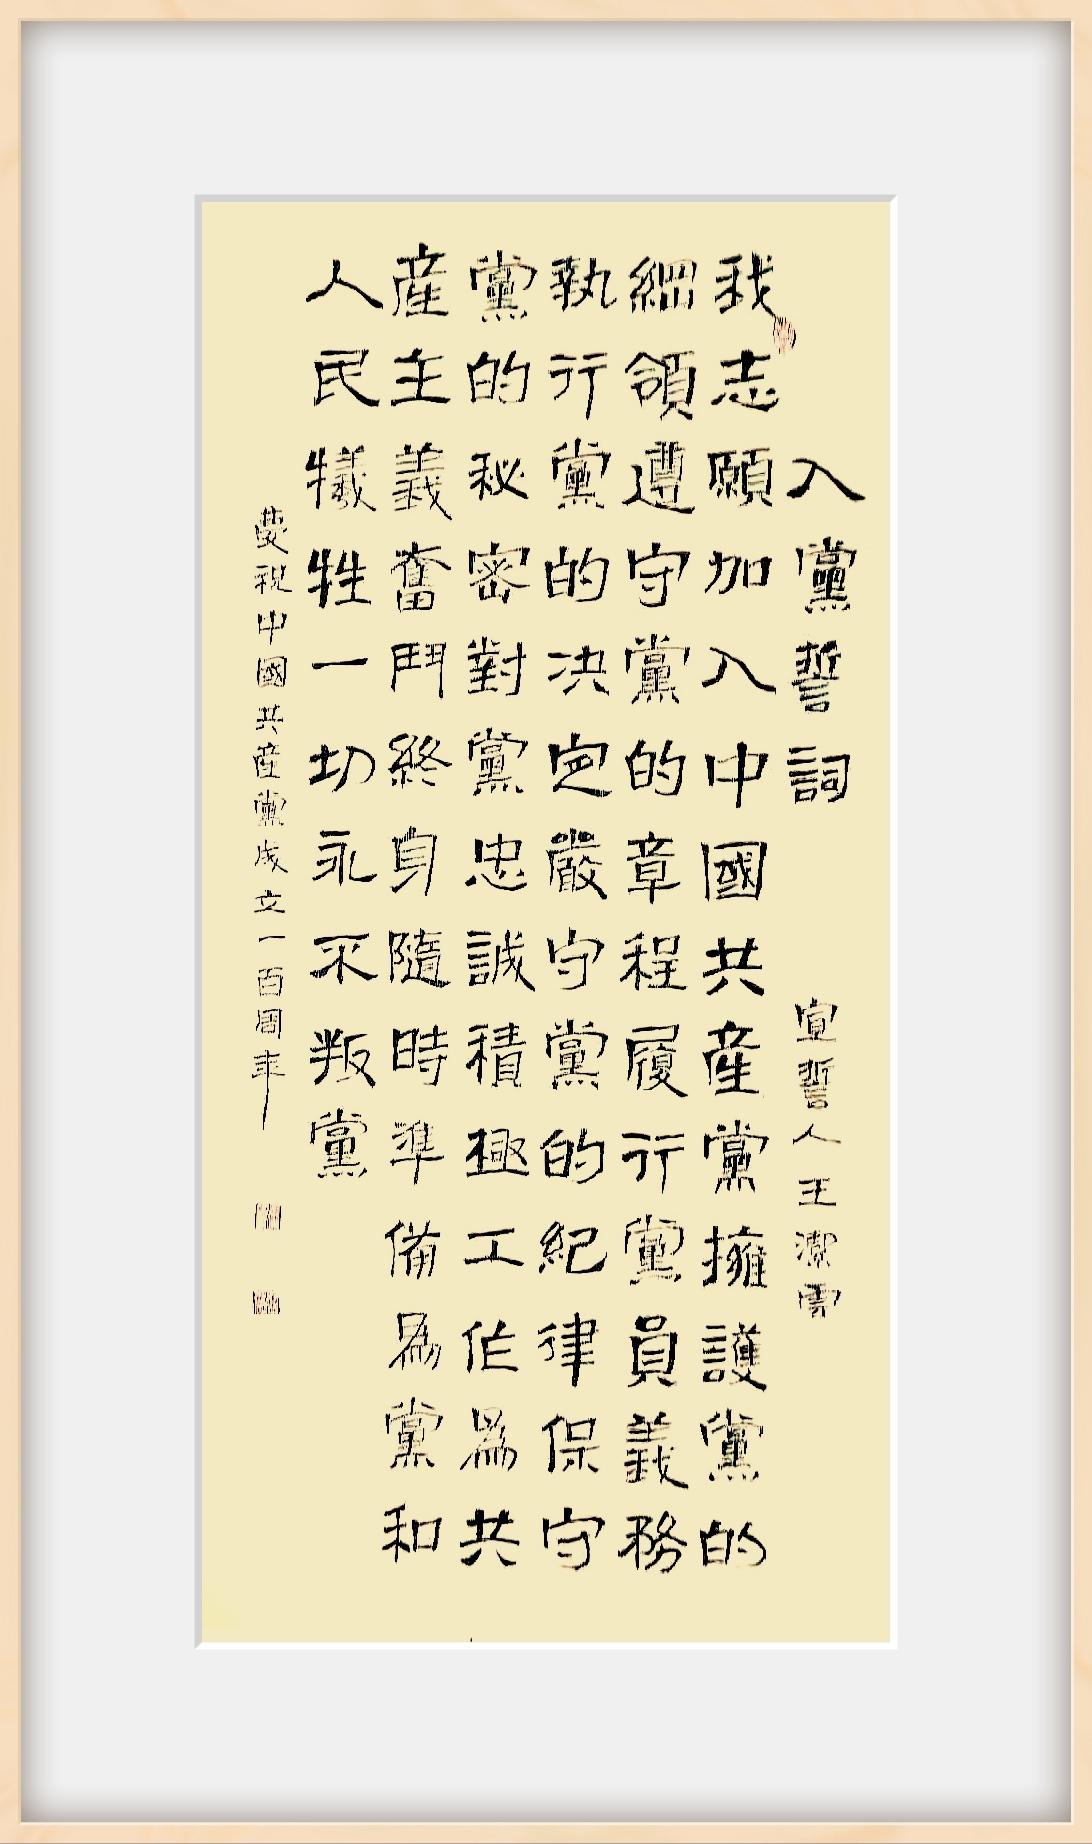 入黨誓詞
宣誓人王潔雪
我志願加入中國共産黨擁護黨的
綱領遵守黨的章程履行黨員義務
執行黨的决定嚴守黨的紀律保守
黨的秘密對黨忠誠積極工作為共
産主義奮鬥終身隨時準備為黨和
人民犧牲一切永不叛黨
慶祝中國共産黨成立一百周年